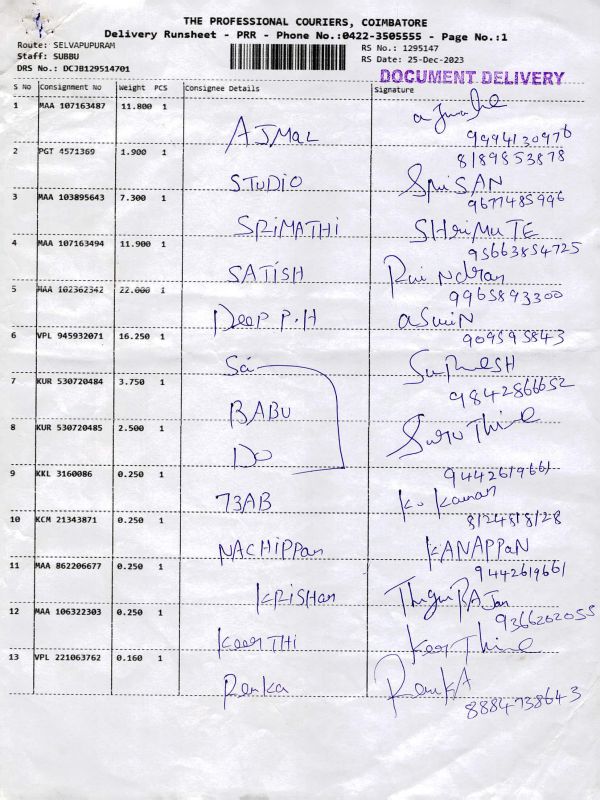 THE PROFESSIONAL COURIERS, COIMBATORE
Delivery Runsheet - PRR - Phone No.:0422-3505555 - Page No.:1
Route: SELVAPUPURAM
Staff: SUBBU
DRS No.: DCJB129514701
RS No.: 1295147
RS Date: 25-Dec-2023
DOCUMENT DELIVERY
S No Consignment No Weight PCS Consignee Details Signature
1 MAA 107163487 11.800 1
AJMAL
9994130976
2 PGT 4571369 1.900 1
8189853878
STUDIO SRiSAN
3 MAA 103895643 7.300 1
9677485996
SRIMATHI SHriMUTE
4 MAA 107163494 11.900 1
95663854725
SATISH
5 MAA 102362342 22.000 1
9965893300
DEEP P.H ASWIN
6 VPL 945932071 16.250 1
909595843
Sai
7 KUR 530720484 3.750 1
9842866652
BABU
8 KUR 530720485 2.500 1
DO
9 KKL 3160086 0.250 1
9442619661
73AB K. Kannan
10 KCM 21343871 0.250 1
8124818128
NACHIPPAN KANAPPAN
11 MAA 862206677 0.250 1
9442619661
KRISHAN
12 MAA 106322303 0.250 1
9366202055
KEERTHI
13 VPL 221063762 0.160 1
Renka RenukA
8884738643